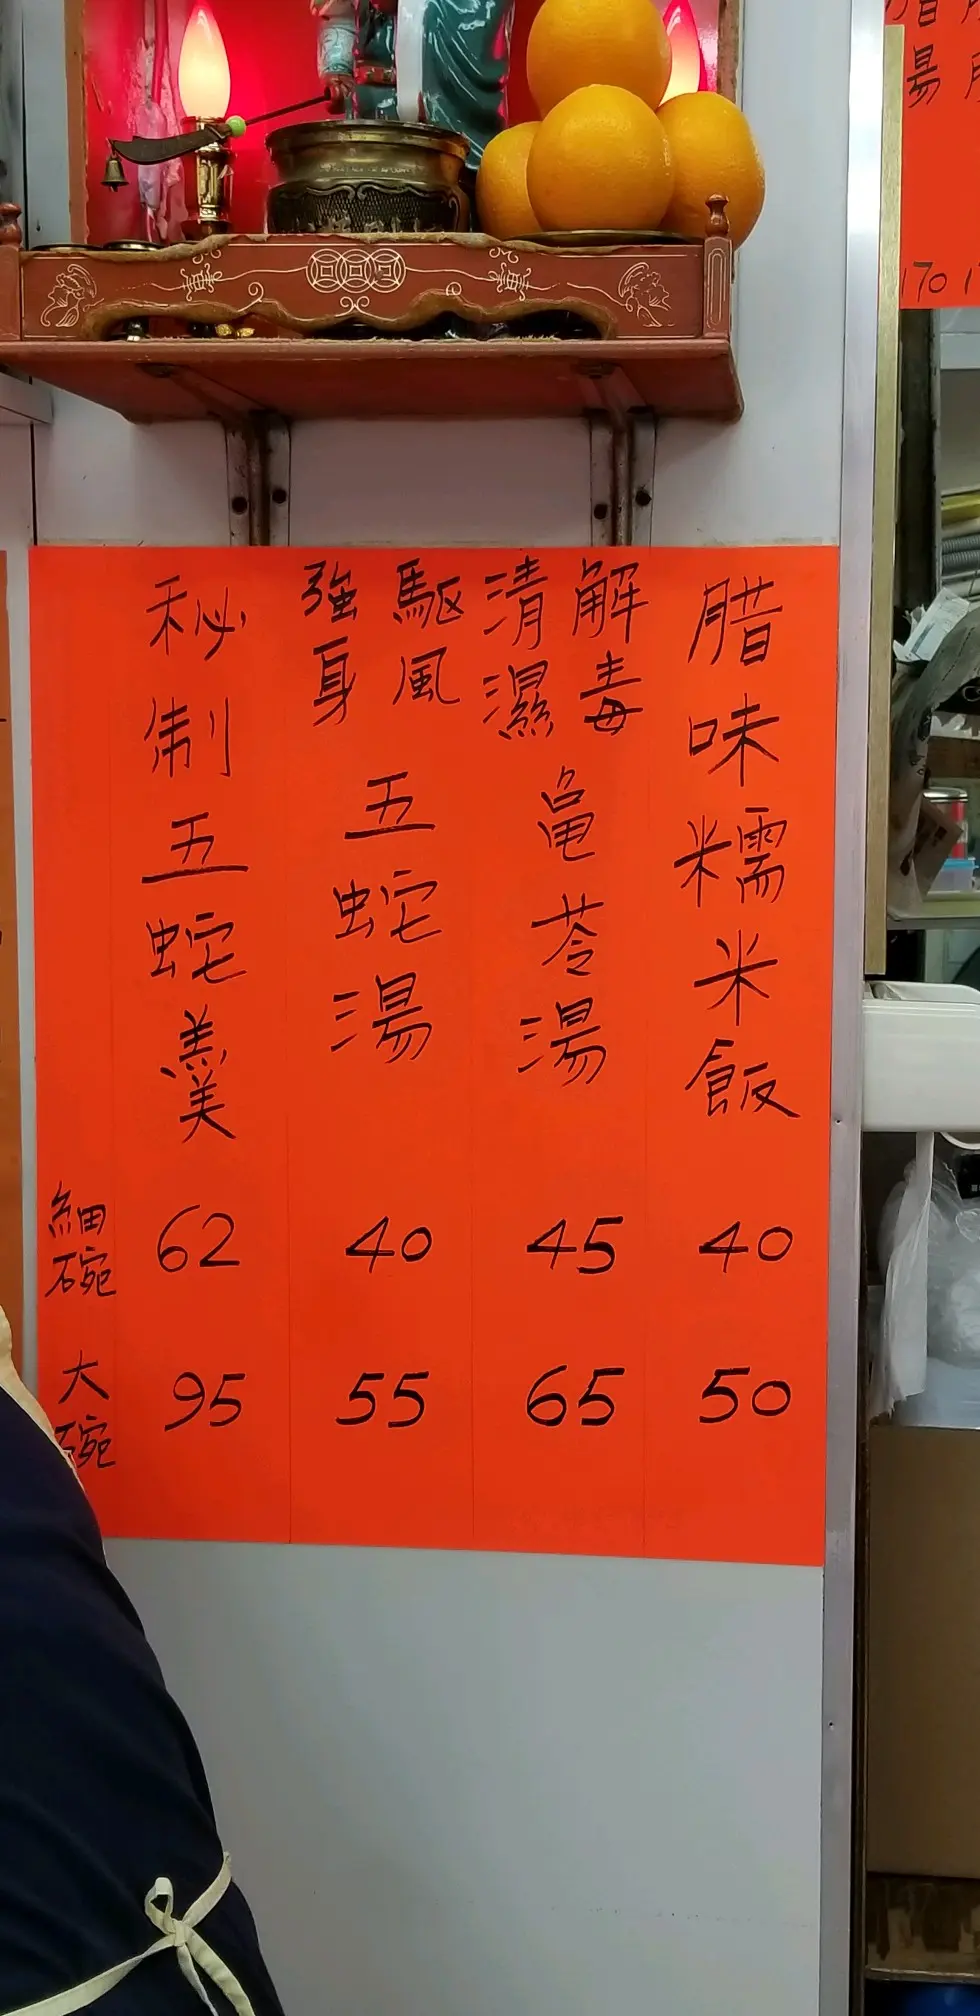 170
腊味糯米飯
40
50
解毒
清濕
亀苓湯
45
65
驅風
強身
五蛇湯
40
55
秘制五蛇羹
62
95
細碗
大碗